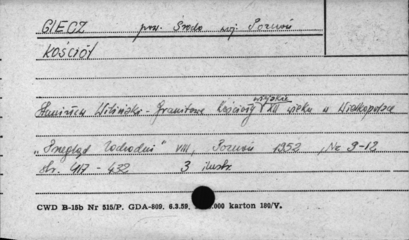 GIECZ pow. Środa woj. Poznań
KOŚCIÓŁ
wiejskie
Stanisław Wiliński - Granitowe kościoły XIII wieku w Wielkopolsce
„Przegląd Zachodni" VIII, Poznań 1952, Nr 9-12
str. 417-432 3 ilustr.
CWD B-15b Nr 515/P. GDA-809. 6.3.59. .000 karton 180/V.